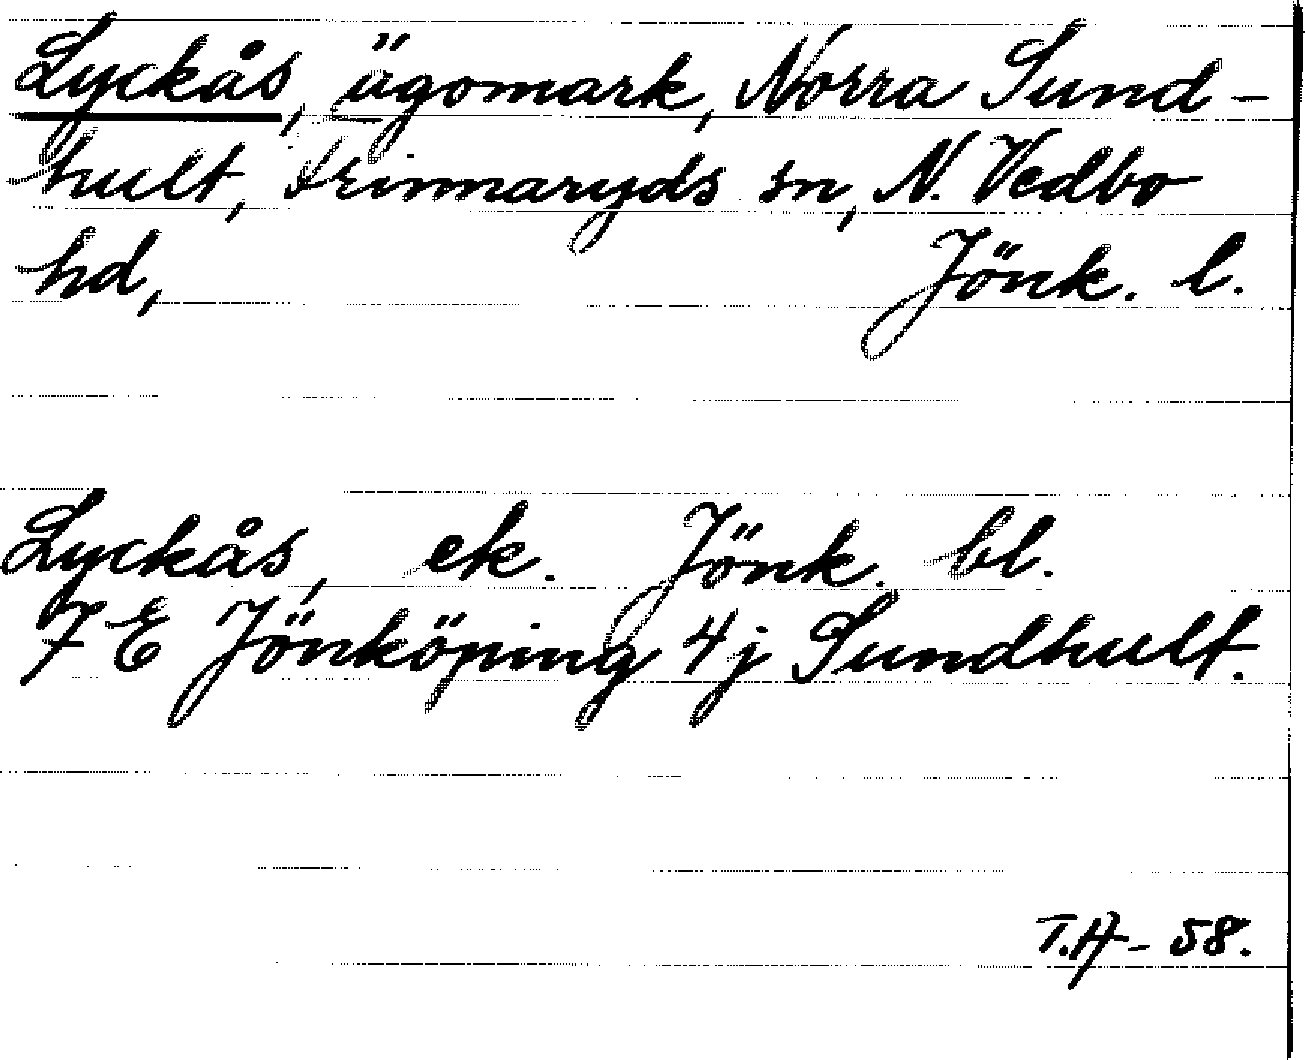 Lyckås, ägomark, Norra Sund-
hult, Frinnaryds sn, N. Vedbo
hd, Jönk. l.
Lyckås, ek. Jönk. bl.
7 E Jönköping 4j Sundhult.
T.A - 58.